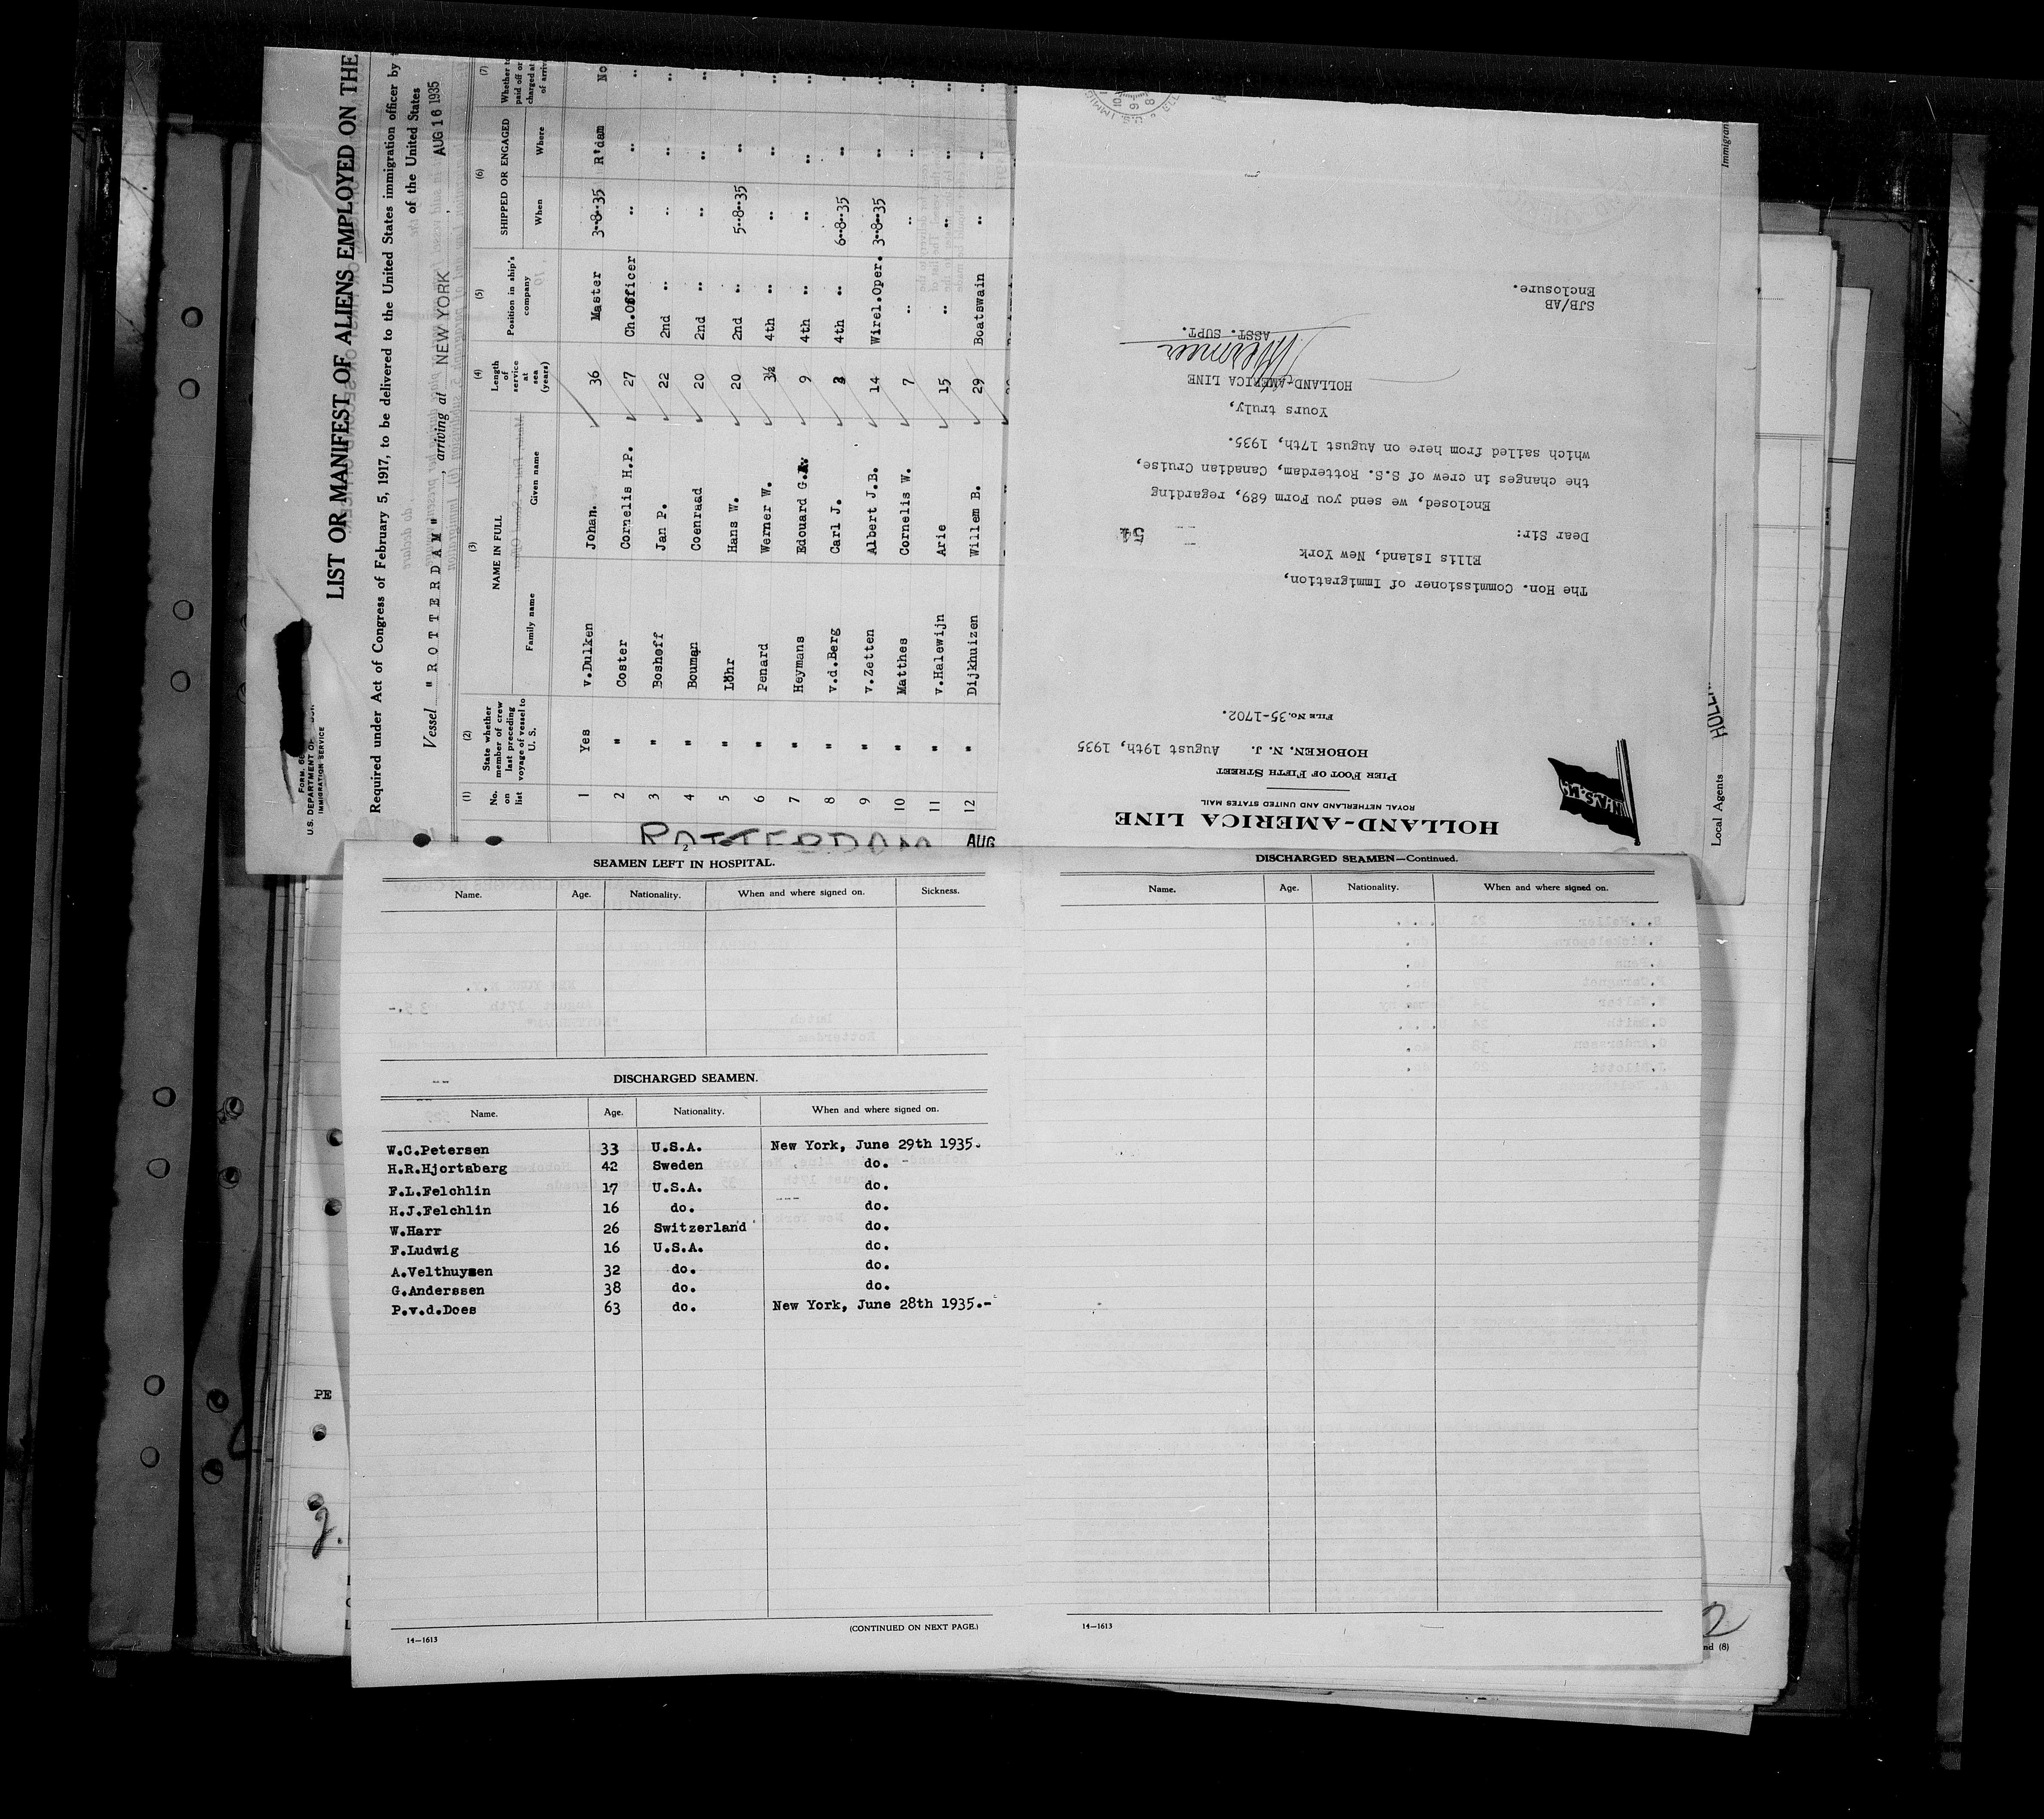 LIST OR MANIFEST OF ALIENS EMPLOYED ON THE
Required under Act of Congress of February 5, 1917, to be delivered to the United States immigration officer by
of the United States
Vessel "ROTTERDAM", arriving at NEW YORK, AUG 16 1935
U.S. DEPARTMENT OF
IMMIGRATION SERVICE
(1) (2) (3) (4) (5) (6) (7)
No. on list State whether member of crew last preceding voyage of vessel to U. S. NAME IN FULL Length of service at sea (years) Position in ship's company SHIPPED OR ENGAGED
Family name Given name When Where
1 Yes v.Dulken Johan. 36 Master 3-8-35 R'dam No
2 " Coster Cornelis H.P. 27 Ch.Officer " "
3 " Boshoff Jan P. 22 2nd " " "
4 " Bouman Coenraad 20 2nd " " "
5 " Löhr Hans W. 20 2nd " 5-8-35 "
6 " Penard Werner W. 3½ 4th " " "
7 " Heymans Edouard G. 9 4th " " "
8 " v.d.Berg Carl J. 3 4th " 6-8-35 "
9 " v.Zetten Albert J.B. 14 Wirel.Oper. 3-8-35 "
10 " Matthes Cornelis W. 7 " " "
11 " v.Halewijn Arie 15 " " "
12 " Dijkhuizen Willem B. 29 Boatswain " "
ROTTERDAM AUG
HOLLAND-AMERICA LINE
ROYAL NETHERLAND AND UNITED STATES MAIL
PIER FOOT OF FIFTH STREET
HOBOKEN, N. J. August 19th, 1935
FILE No. 35-1702.
The Hon. Commissioner of Immigration,
Ellis Island, New York
Dear Sir:
54
Enclosed, we send you Form 689, regarding
the changes in crew of S.S. Rotterdam, Canadian Cruise,
which sailed from here on August 17th, 1935.
Yours truly,
HOLLAND-AMERICA LINE
ASST. SUPT.
SJB/AB
Enclosure.
Local Agents
2
SEAMEN LEFT IN HOSPITAL.
Name. Age. Nationality. When and where signed on. Sickness.
DISCHARGED SEAMEN.
Name. Age. Nationality. When and where signed on.
W.C.Petersen 33 U.S.A. New York, June 29th 1935.
H.R.Hjortsberg 42 Sweden do.
F.L.Felchlin 17 U.S.A. do.
H.J.Felchlin 16 do. do.
W.Harr 26 Switzerland do.
F.Ludwig 16 U.S.A. do.
A.Velthuysen 32 do. do.
G.Anderssen 38 do. do.
P.v.d.Does 63 do. New York, June 28th 1935.-
14—1613
(CONTINUED ON NEXT PAGE.)
DISCHARGED SEAMEN—Continued.
Name. Age. Nationality. When and where signed on.
14—1613
PE
nd (8)